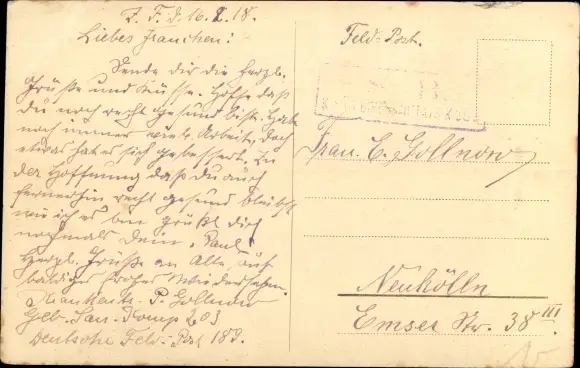 Z. F. d. 10. 2. 18.
Liebes Frauchen!
Sende dir die herzl.
Grüße und Küsse. Hoffe daß
du noch recht gesund bist. Habe
noch immer viel Arbeit, doch
etwas hat es sich gebessert. In
der Hoffnung daß du auch
fernerhin recht gesund bleibst
wie ich es bin grüßt dich
nochmals dein Paul
Herzl. Grüße an Alle auf
baldiges frohes Wiedersehen.
P. Gollnow
Geb. San. Komp 203
Deutsche Feld-Post 189.
Feld-Post.
Frau E. Gollnow
Neukölln
Emser Str. 38 III.